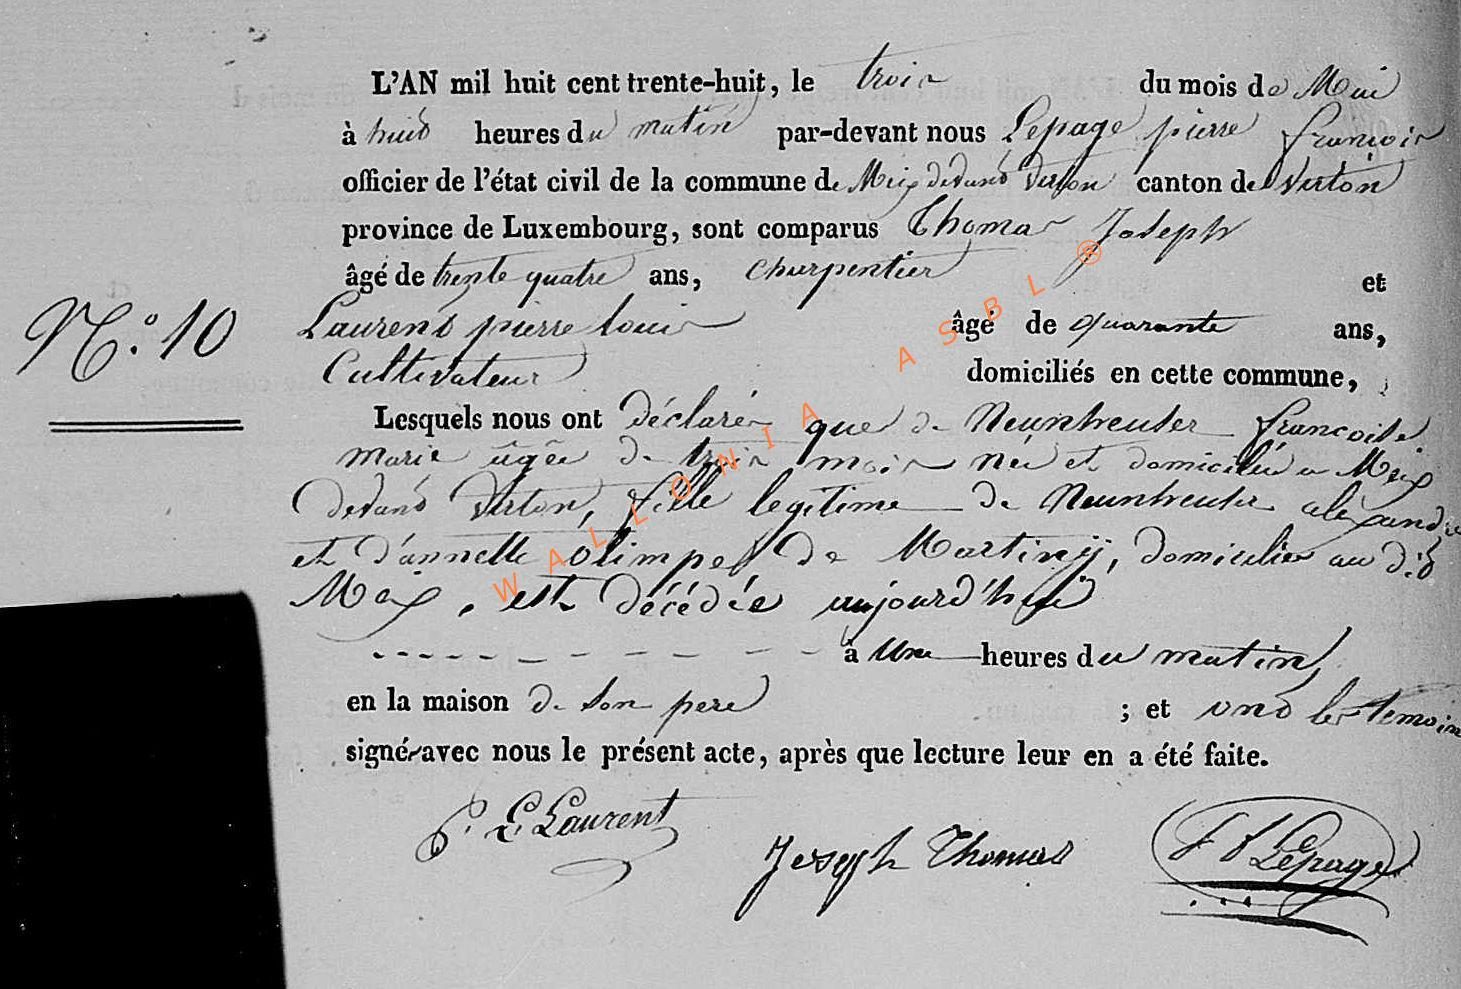 L'AN mil huit cent trente-huit, le trois du mois de Mai
à huit heures du matin par-devant nous Lepage pierre francois
officier de l'état civil de la commune de Meix devant Virton canton de Virton
province de Luxembourg, sont comparus Thomas Joseph
âgé de trente quatre ans, charpentier et
N.° 10
Laurent pierre louis âgé de quarante ans,
Cultivateur domiciliés en cette commune,
Lesquels nous ont déclarés que de Neunheuser francoise
marie âgée de trois mois née et domiciliée a Meix
devant Virton, fille legitime de Neunheuser alexandre
et d'annette olimpe de Martinÿ, domiciliés au dit
Meix, est décédée aujourd'hui
à une heures du matin,
en la maison de son pere ; et ont les temoins
signé avec nous le présent acte, après que lecture leur en a été faite.
P. L. Laurent
Joseph Thomas
Lepage
WALLONIA ASBL ®